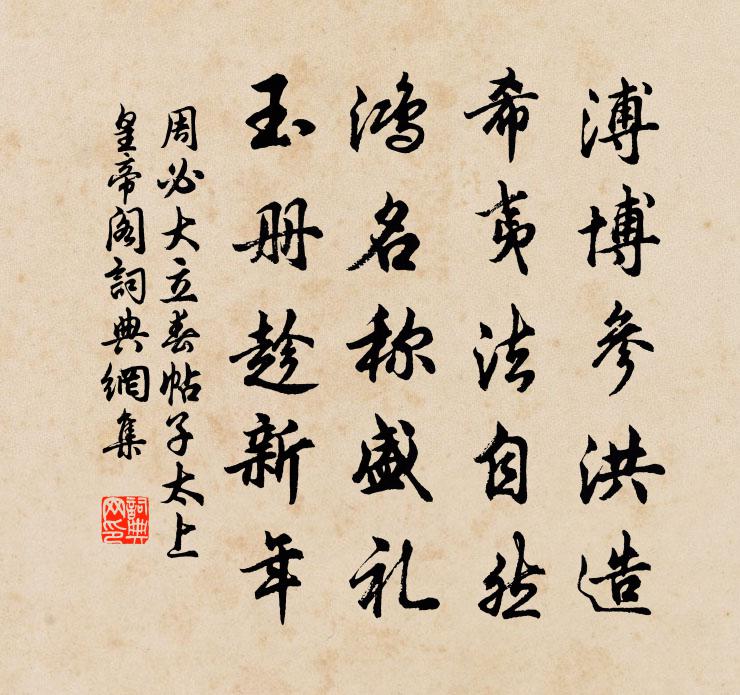 溥博参洪造
希夷法自然
鸿名称盛礼
玉册趁新年
周必大立春帖子太上
皇帝阁詞典網集
詞典
网印